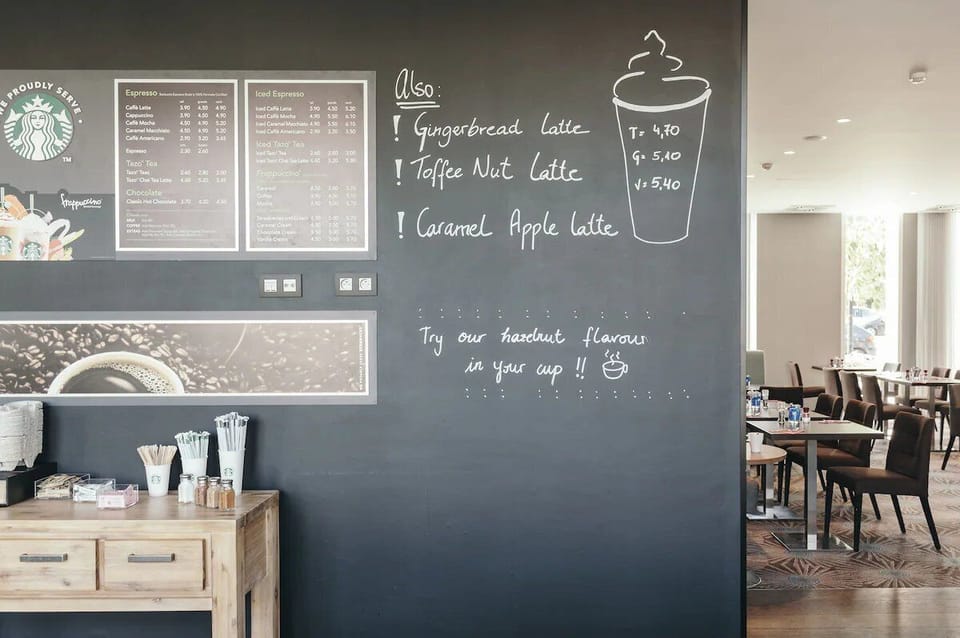 WE PROUDLY SERVE
TM
frappuccino
Espresso
tall grande venti
Caffè Latte 3.90 4.50 4.90
Cappuccino 3.90 4.50 4.90
Caffè Mocha 3.90 4.50 4.90
Caramel Macchiato 4.50 4.90 5.20
Caffè Americano 2.90 3.20 3.65
Espresso 2.30 2.60
Tazo® Tea
Tazo® Tea
Tazo® Chai Tea Latte
Chocolate
Classic Hot Chocolate 3.70 4.20 4.50
Iced Espresso
Iced Caffè Latte 3.90 4.50 5.20
Iced Caffè Mocha
Iced Caramel Macchiato
Iced Caffè Americano
Iced Tazo® Tea
Iced Tazo® Tea
Iced Tazo® Chai Tea Latte
Frappuccino®
Caramel
Coffee
Mocha
Caramel Cream
Chocolate Cream
Vanilla Cream
Also:
! Gingerbread Latte
! Toffee Nut Latte
! Caramel Apple Latte
T= 4,70
G= 5,10
V= 5,40
Try our hazelnut flavour
in your cup !!